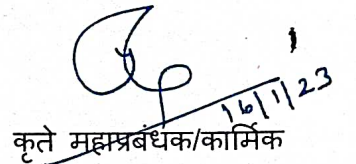 16/1/23
कृते महाप्रबंधक/कार्मिक